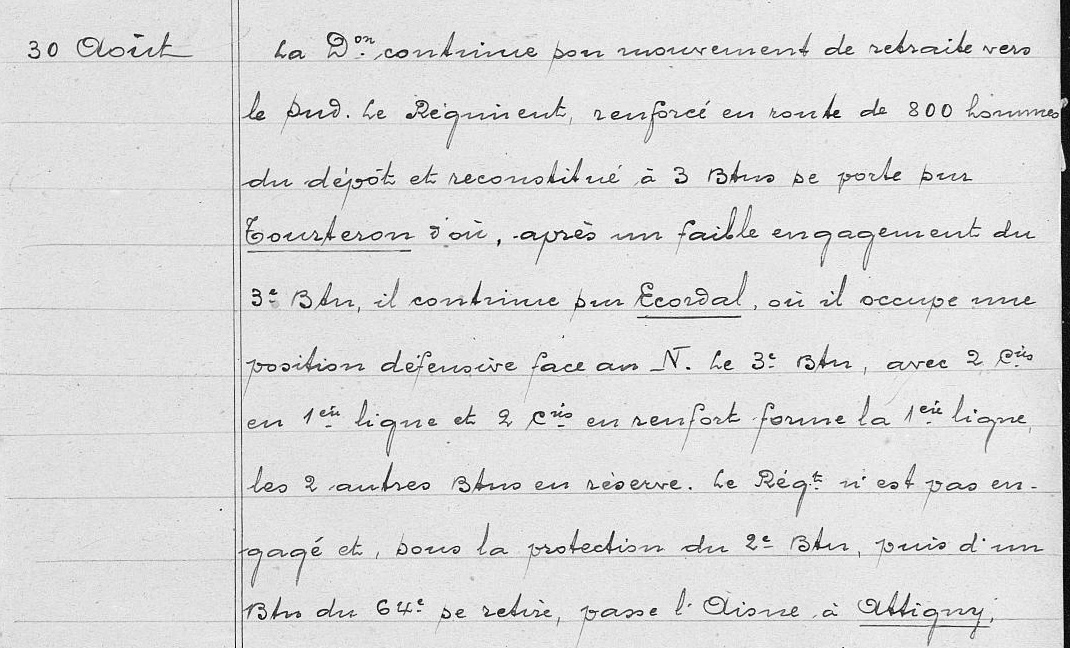 30 Août La Don continue son mouvement de retraite vers
le sud. Le Régiment, renforcé en route de 800 hommes
du dépôt et reconstitué à 3 Btns se porte sur
Tourteron d'où, après un faible engagement du
3e Btn, il continue sur Ecordal, où il occupe une
position défensive face au N. Le 3e Btn, avec 2 Cies
en 1ère ligne et 2 Cies en renfort forme la 1ère ligne,
les 2 autres Btns en réserve. Le Régt n'est pas en-
gagé et, sous la protection du 2e Btn, puis d'un
Btn du 64e se retire, passe l'Aisne à Attigny,